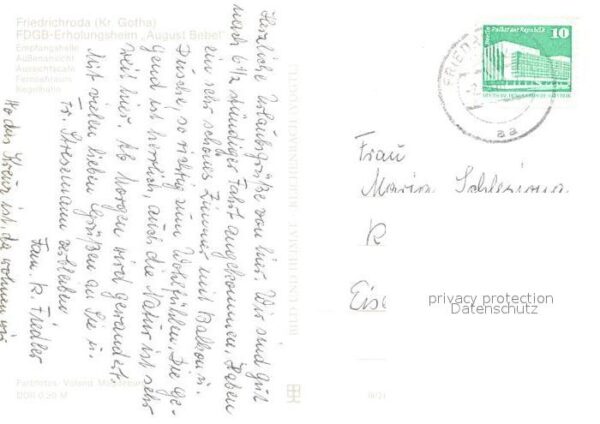 Friedrichroda (Kr. Gotha)
FDGB-Erholungsheim „August Bebel"
Empfangshalle
Außenansicht
Aussichtscafé
Fernsehraum
Kegelbahn
Herzliche Urlaubsgrüße von hier. Wir sind gut
nach 6½ stündiger Fahrt angekommen. Haben
ein sehr schönes Zimmer mit Balkon u.
Dusche, so richtig zum Wohlfühlen. Die Ge-
gend ist herrlich, auch die Natur ist sehr
weit hier. Ab Morgen wird gewandert.
Mit vielen lieben Grüßen an Sie u.
Fr. Stresemann verbleiben
Fam. K. Fiedler
Wo das Kreuz ist, da wohnen wir
Farbfotos: Voland
DDR 0,20 M
BILD UND HEIMAT REICHENBACH
FRIED
aa
10
Palast der Republik
Frau
Maria
K
Eis
privacy protection
Datenschutz